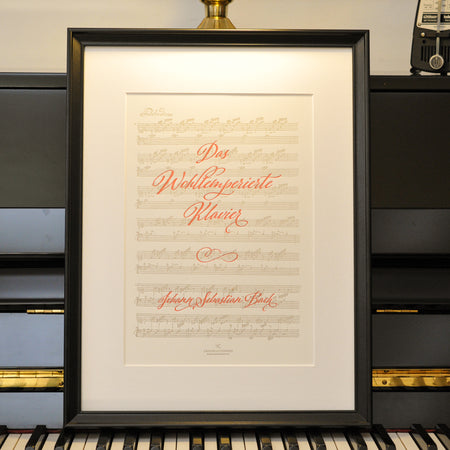 Das
Wohltemperierte
Klavier
Johann Sebastian Bach